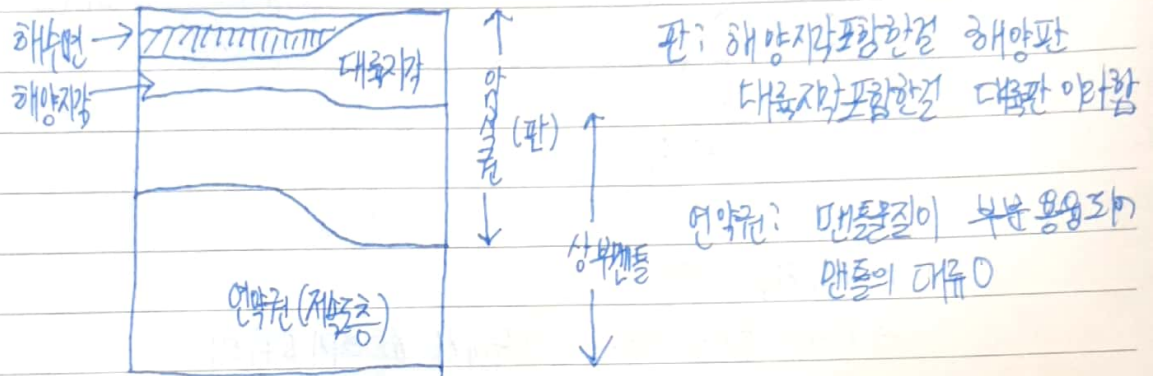 해수면
해양지각
대륙지각
암석권
(판)
상부맨틀
연약권(저속도층)
판: 해양지각포함한걸 해양판
대륙지각포함한걸 대륙판 이라함
연약권: 맨틀물질이 부분용융되어
맨틀의 대류O